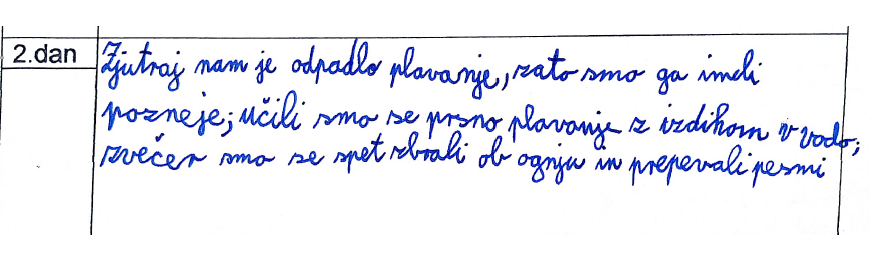 2.dan
Zjutraj nam je odpadlo plavanje, zato smo ga imeli
pozneje; učili smo se prsno plavanje z izdihom v vodo;
zvečer smo se spet zbrali ob ognju in prepevali pesmi